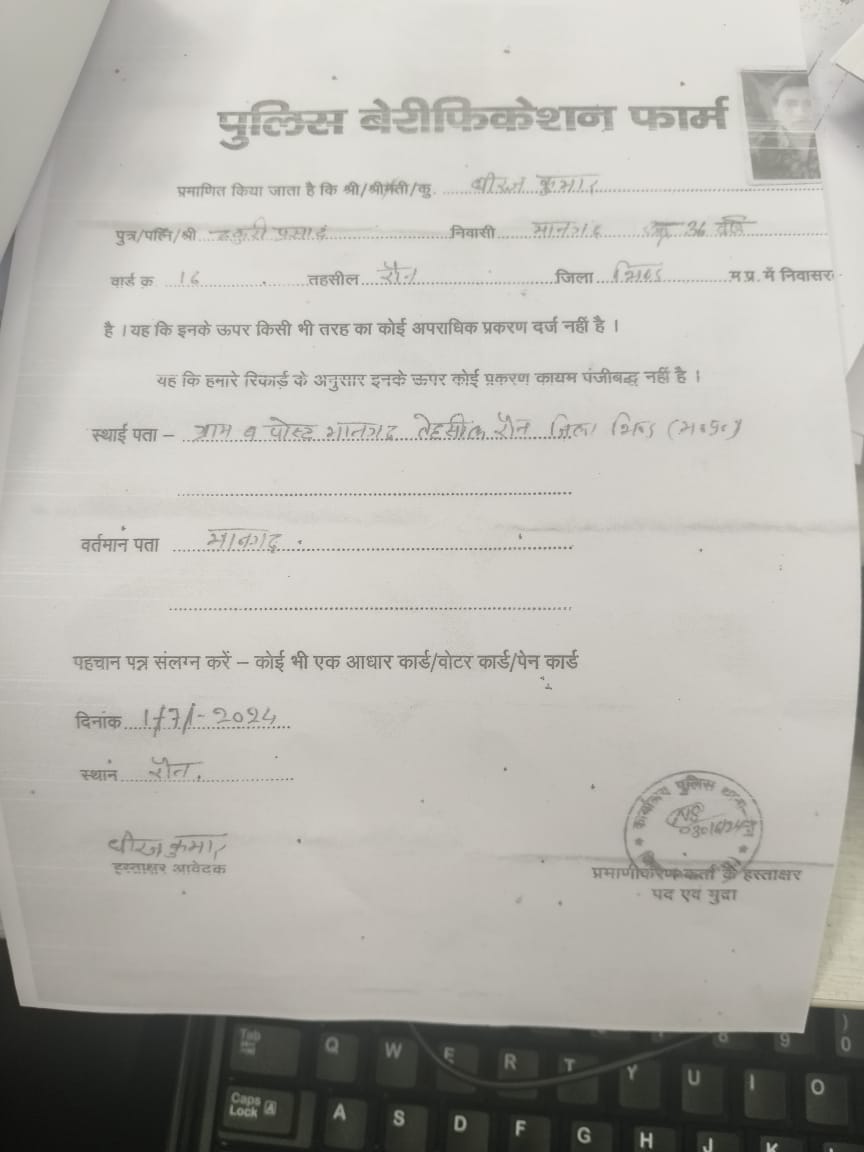 पुलिस बेरीफिकेशन फार्म
प्रमाणित किया जाता है कि श्री/श्रीमती/कु. धीरज कुमार
पुत्र/पत्नि/श्री प्रसाद निवासी मानगढ 36 वर्ष
वार्ड क्र 16 तहसील रौन जिला भिण्ड म.प्र. में निवासर
है । यह कि इनके ऊपर किसी भी तरह का कोई अपराधिक प्रकरण दर्ज नहीं है ।
यह कि हमारे रिकार्ड के अनुसार इनके ऊपर कोई प्रकरण कायम पंजीबद्ध नहीं है ।
स्थाई पता – ग्राम व पोस्ट मानगढ तेहसील रौन जिला भिण्ड (म०प्र०)
वर्तमान पता मानगढ
पहचान पत्र संलग्न करें – कोई भी एक आधार कार्ड/वोटर कार्ड/पेन कार्ड
दिनांक 1/7/-2024
स्थान रौन.
कार्यालय पुलिस थाना
धीरज कुमार
हस्ताक्षर आवेदक
प्रमाणीकरण कर्ता के हस्ताक्षर
पद एवं मुद्रा
Tab Q W E R T Y U I O 9 ) 0
Caps Lock A S D F G H J K